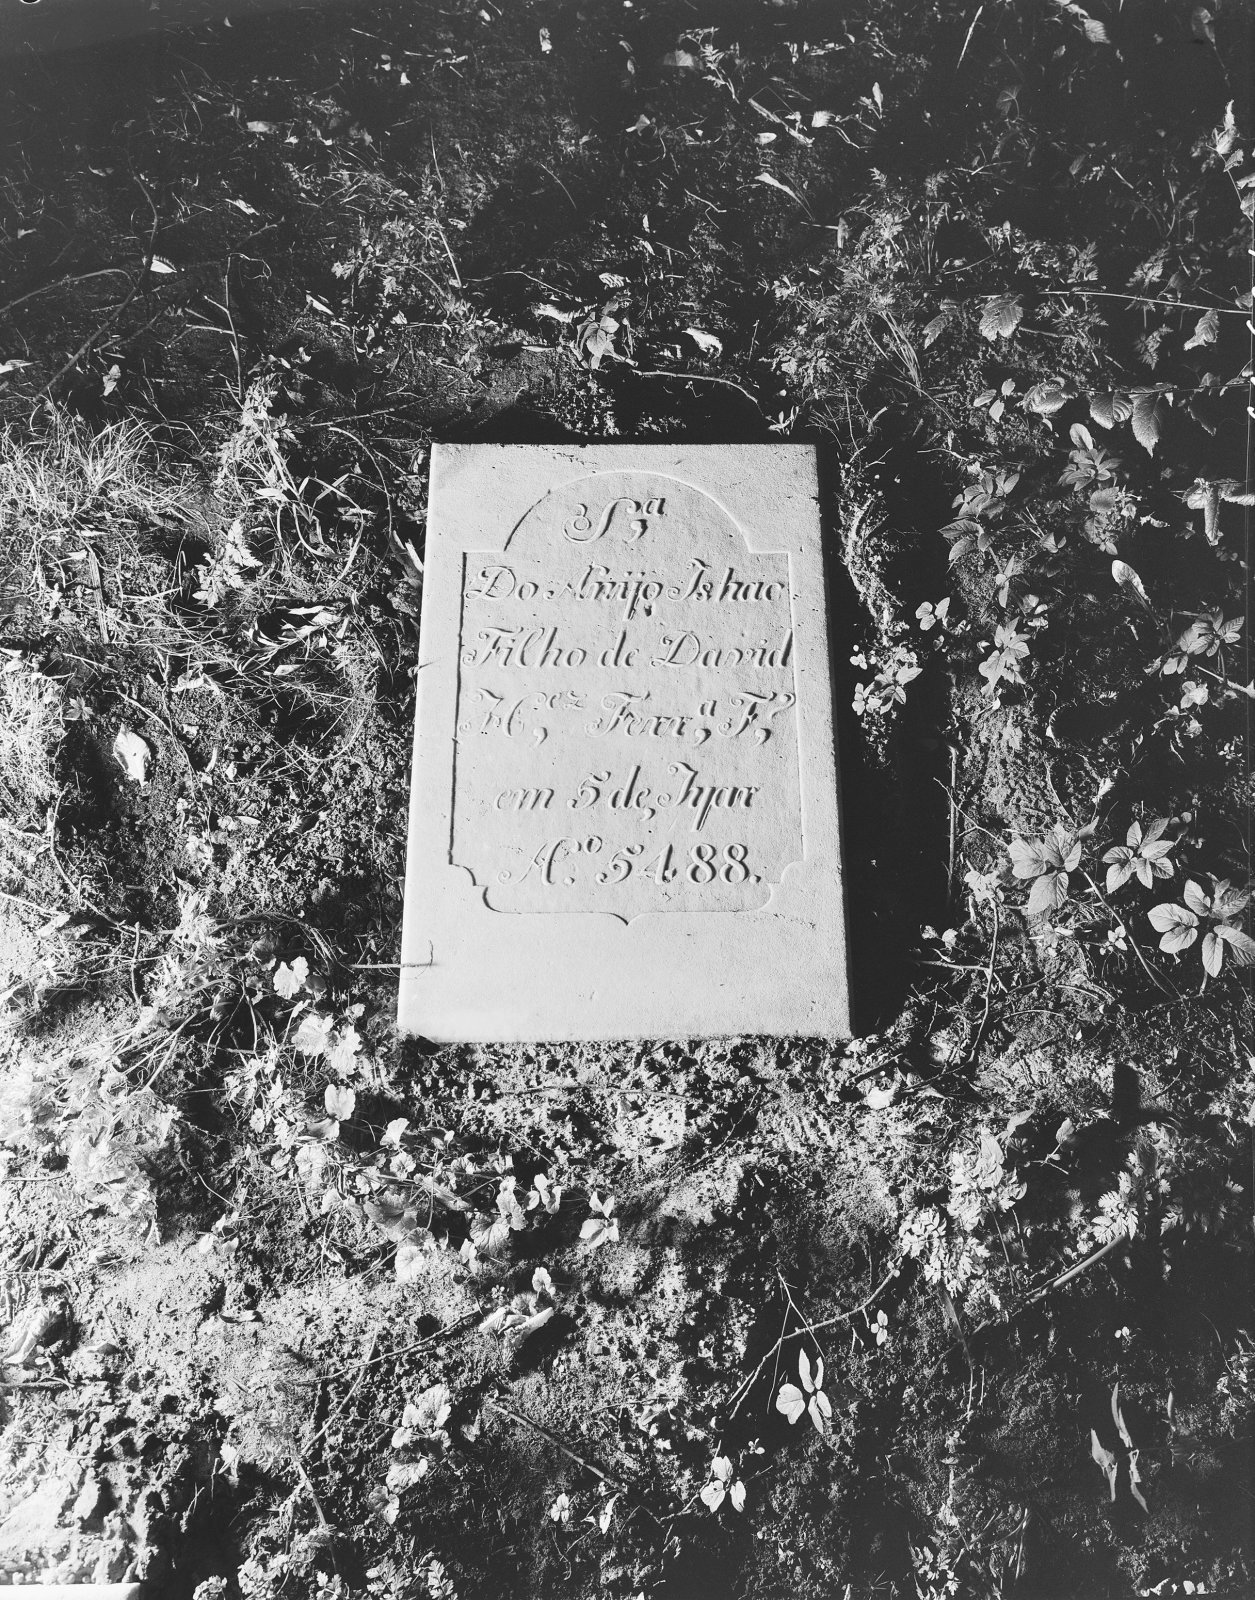 S,ª
Do Anijo Ishac
Filho de David
H,ez Ferr,ª F,º
em 5 de Iyar
Aº. 5488.